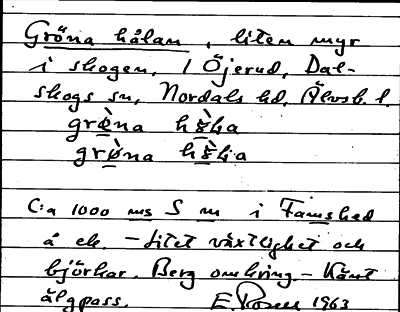 Gröna hålan, liten myr
i skogen, 1 Öjerud, Dal-
skogs sn, Nordals hd, Älvsb. l.
grø̀na
grø̀na
C:a 1000 ms S m i Famshed
å ek. - Litet växtlighet och
björkar. Berg omkring - Känt
älgpass. E. Rosen 1963